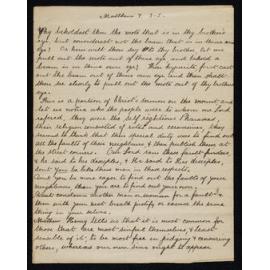 Matthew 7 3-5.
Why beholdest thou the mote that is in thy brother's
eye, but considerest not the beam that is in thine own
eye? Or how wilt thou say to thy brother let me
pull out the mote out of thine eye and behold a
beam is in thine own eye? Thou hypocrite first cast
out the beam out of thine own eye and then shalt
thou see clearly to pull out the mote out of thy brother's
eye.
This is a portion of Christ's Sermon on the Mount and
let us notice who the people were to whom our Lord
refered, they were the Self righteous Pharisees,
their religion consisted of rites and ceremonies, they
seemed to think that their special duty was to find out
all the faults of their neighbours & then publish them at
the street corners. Our Lord saw these fault-finders
& he said to his disciples, & He said to His disciples,
don't you be like these men in these respects.
Don't you be more eager to find out the faults of your
neighbours than you are to find out your own.
Don't condemn another man or woman for a fault
then with your next breath justify or excuse the same
thing in your selves.
Matthew Henry tells us that it is most common for
those that are most sinful themselves & least
sensible of it, to be most free in judging & censuring
others, whereas our own sins ought to appear